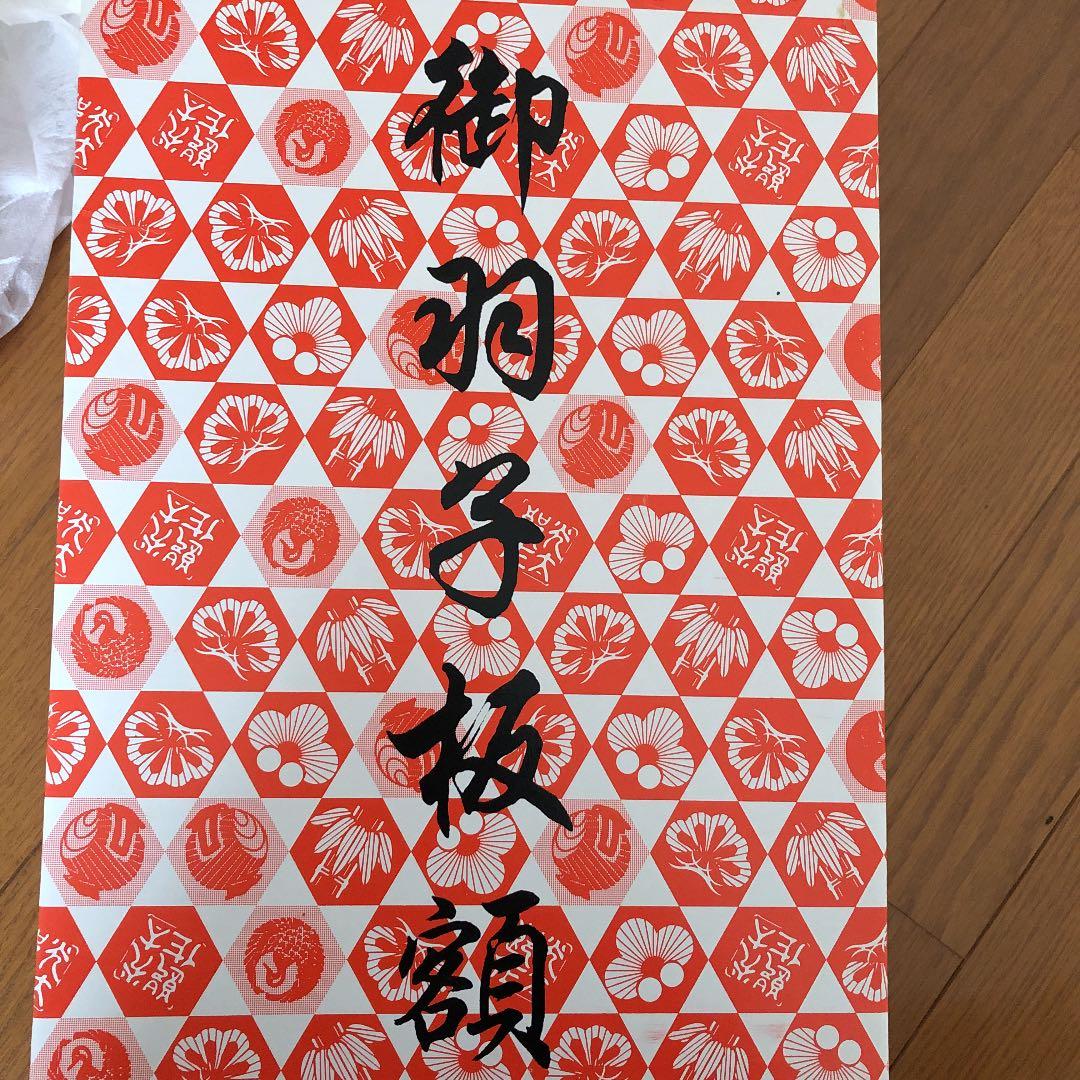 御羽子板額